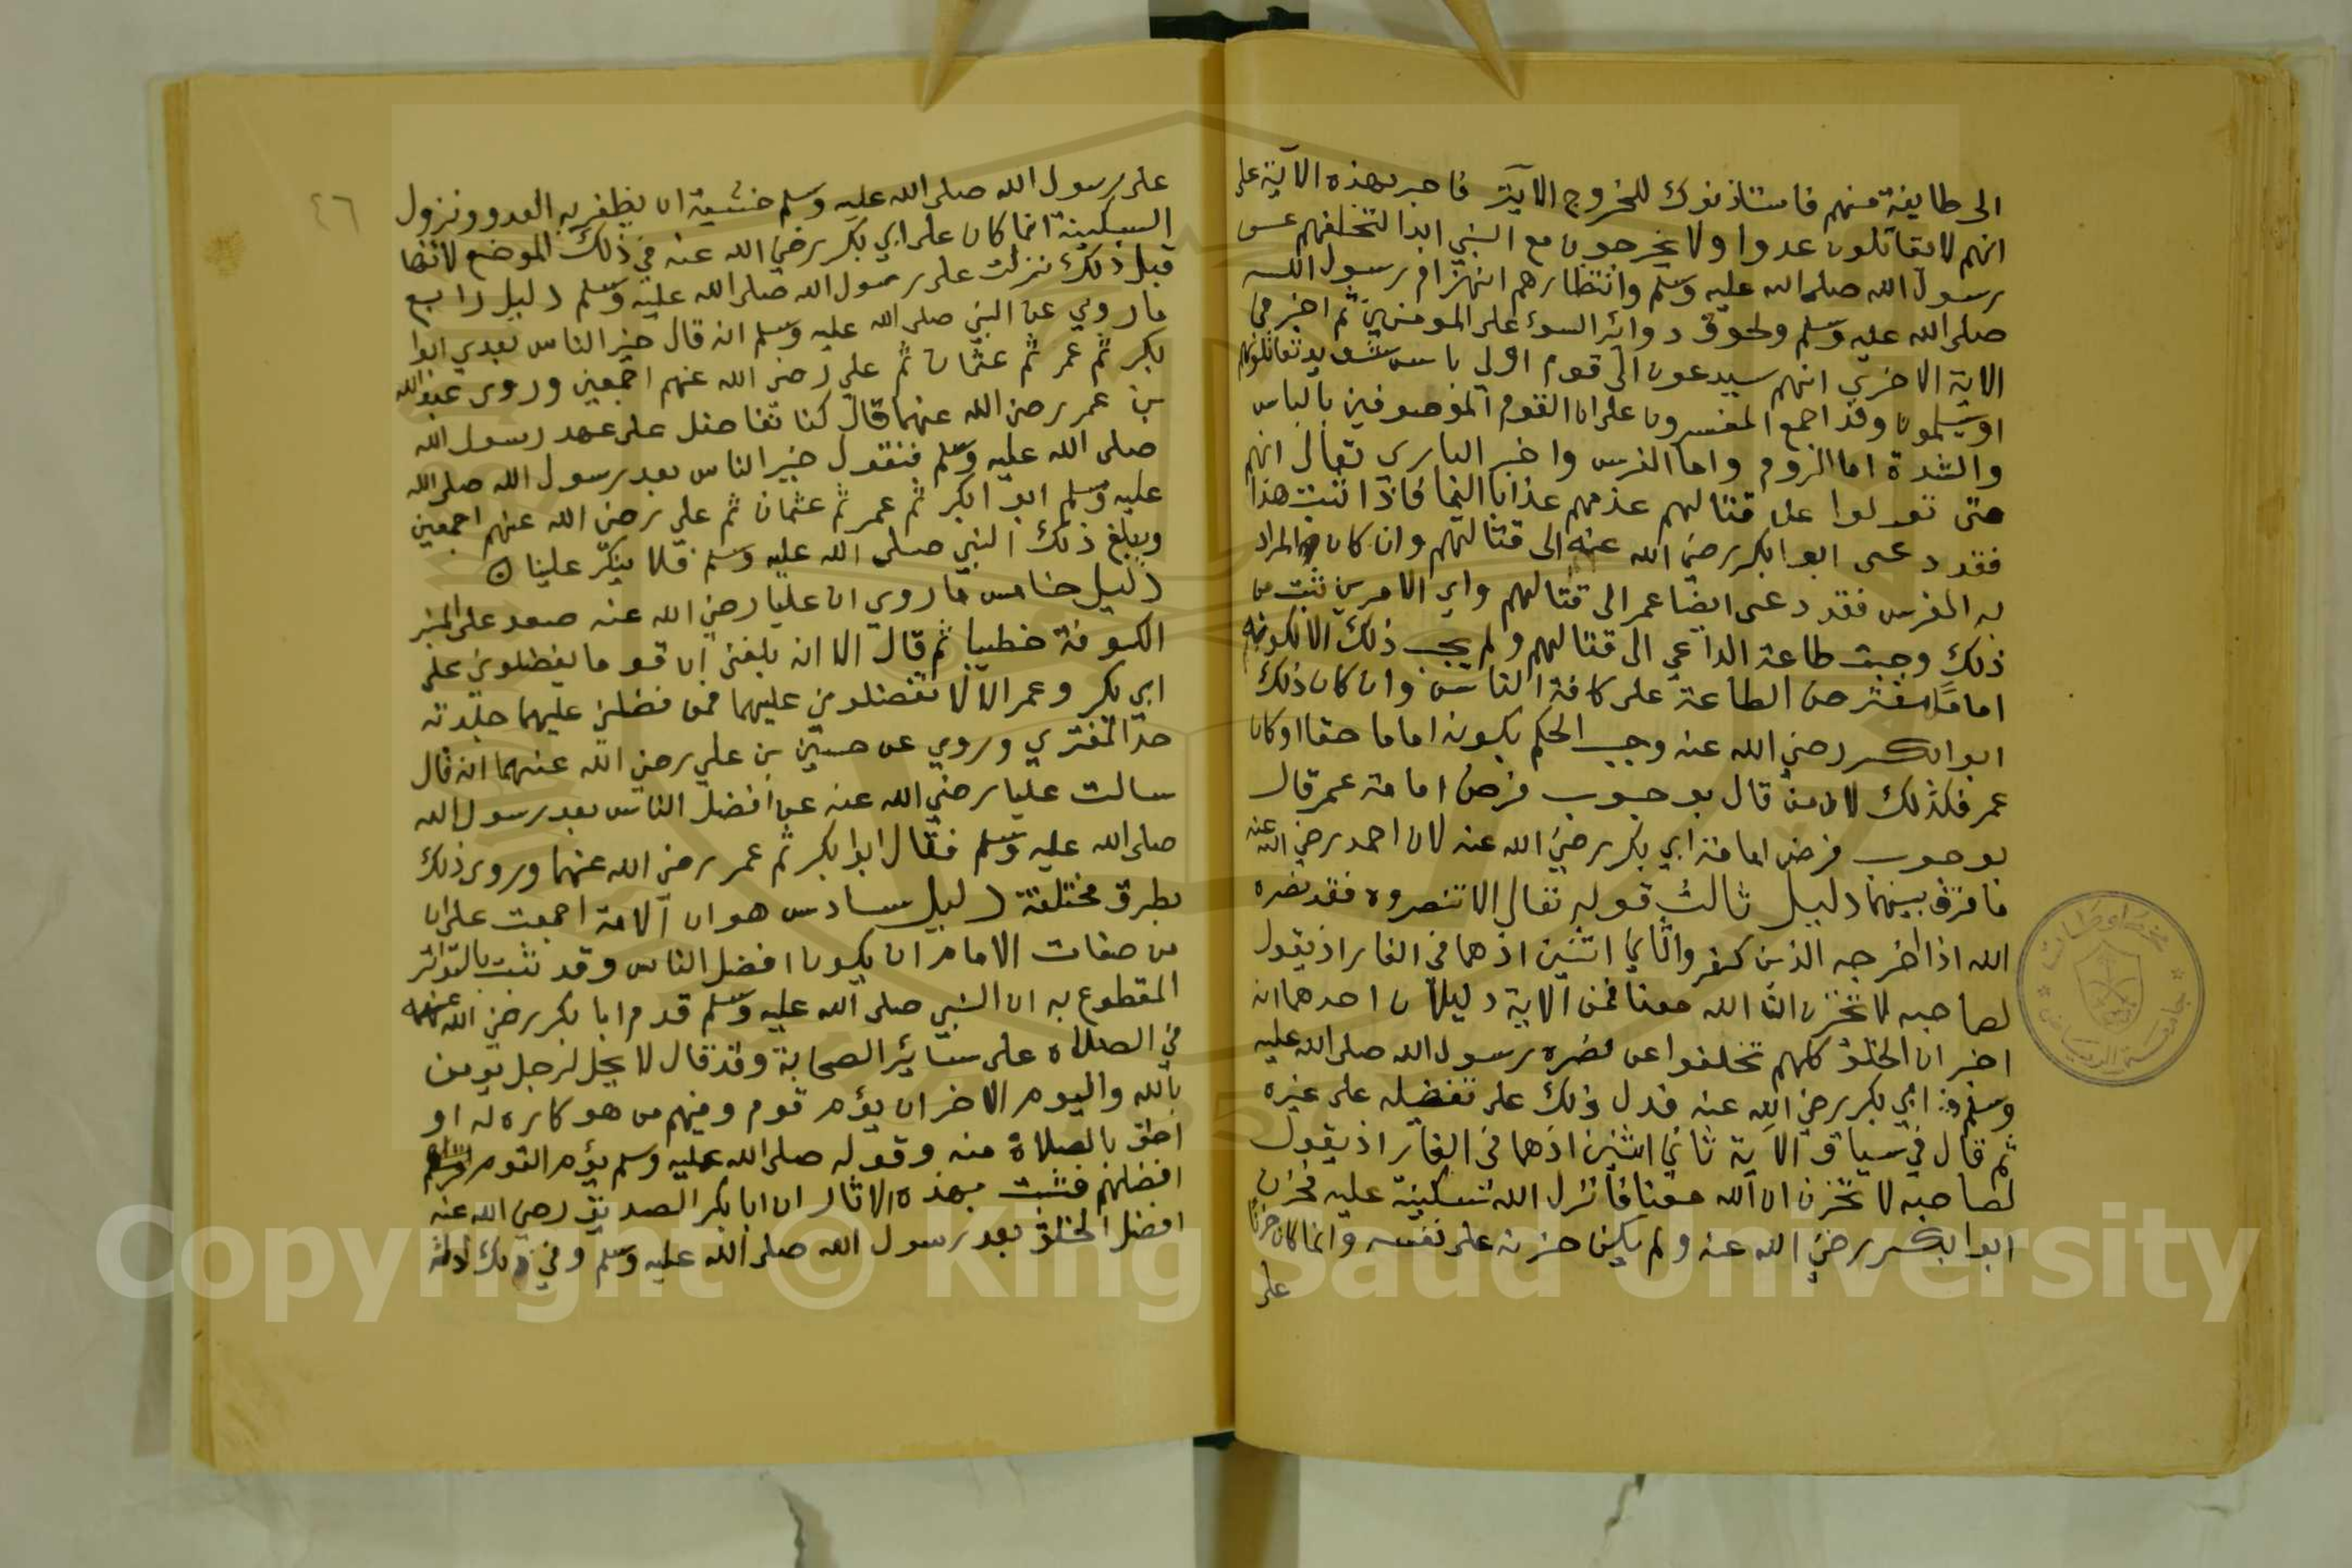 الى طايفة منهم فاستاذنوك للخروج الاية فاخبر بهذه الاية على
انهم لا يقاتلون عدوا ولا يخرجون مع النبي ابدا لتخلفهم عن
رسول الله صلى الله عليه وسلم وانتظارهم انهزام رسول الله
صلى الله عليه وسلم ولحوق دوائر السوء على المومنين ثم اخبر في
الاية الاخرى انهم سيدعون الى قوم اولي باس شديد تقاتلونهم
او يسلمون وقد اجمع المفسرون على ان القوم الموصوفين بالباس
والشدة اما الروم واما الفرس واخبر الباري تعالى انهم
متى تولوا عن قتالهم عذبهم عذابا اليما فاذا ثبت هذا
فقد دعى ابوا بكر رضي الله عنه الى قتالهم وان كان المراد
به الفرس فقد دعى ايضا عمر الى قتالهم واي الامرين ثبت من
ذلك وجبت طاعة الداعي الى قتالهم ولم يجب ذلك الا لكونه
اماما مفترض الطاعة على كافة الناس وان كان ذلك
ابوا بكر رضي الله عنه وجب الحكم بكونه اماما حقا او كان
عمر فكذلك لان من قال بوجوب فرض امامة عمر قال
بوجوب فرض امامة ابي بكر رضي الله عنه لان احمد رضي الله عنه
ما فرق بينهما دليل ثالث قوله تعالى الا تنصروه فقد نصره
الله اذ اخرجه الذين كفروا ثاني اثنين اذ هما في الغار اذ يقول
لصاحبه لا تحزن ان الله معنا فمن الاية دليلان احدهما انه
اخبر ان الخلق كلهم تخلفوا عن نصره رسول الله صلى الله عليه
وسلم ابي بكر رضي الله عنه فدل ذلك على تفضله على غيره
ثم قال في سياق الاية ثاني اثنين اذ هما في الغار اذ يقول
لصاحبه لا تحزن ان الله معنا فانزل الله سكينته عليه فحزن
ابوا بكر رضي الله عنه ولم يكن حزنه على نفسه وانما كان حزنا
على
٤٦
على رسول الله صلى الله عليه وسلم خشية ان يظفر به العدو ونزول
السكينة انما كان على ابي بكر رضي الله عنه في ذلك الموضع لانها
قبل ذلك نزلت على رسول الله صلى الله عليه وسلم دليل رابع
ما روي عن النبي صلى الله عليه وسلم انه قال خير الناس بعدي ابوا
بكر ثم عمر ثم عثمان ثم علي رضي الله عنهم اجمعين وروى عبد الله
بن عمر رضي الله عنهما قال كنا نفاضل على عهد رسول الله
صلى الله عليه وسلم فنقول خير الناس بعد رسول الله صلى الله
عليه وسلم ابوا بكر ثم عمر ثم عثمان ثم علي رضي الله عنهم اجمعين
ويبلغ ذلك النبي صلى الله عليه وسلم فلا ينكر علينا ه
دليل خامس ما روي ان عليا رضي الله عنه صعد على المنبر
الكوفة خطيبا ثم قال الا انه بلغني ان قوما يفضلوني على
ابي بكر وعمر الا لا تفضلوني عليهما فمن فضلني عليهما جلدته
حد المفتري وروي عن حسين بن علي رضي الله عنهما انه قال
سالت عليا رضي الله عنه عن افضل الناس بعد رسول الله
صلى الله عليه وسلم فقال ابوا بكر ثم عمر رضي الله عنهما وروى ذلك
بطرق مختلفة دليل سادس هو ان الامة اجمعت على ان
من صفات الامام ان يكون افضل الناس وقد ثبت بالتواتر
المقطوع به ان النبي صلى الله عليه وسلم قدم ابا بكر رضي الله عنه
في الصلاه على سائر الصحابة وقد قال لا يحل لرجل يومن
بالله واليوم الاخر ان يؤم قوم وفيهم من هو كاره له او
احق بالصلاة منه وقوله صلى الله عليه وسلم يؤم القوم
افضلهم فثبت بهذه الاثار ان ابا بكر الصديق رضي الله عنه
افضل الخلق بعد رسول الله صلى الله عليه وسلم وفي ذلك ادلة
Copyright © King Saud University